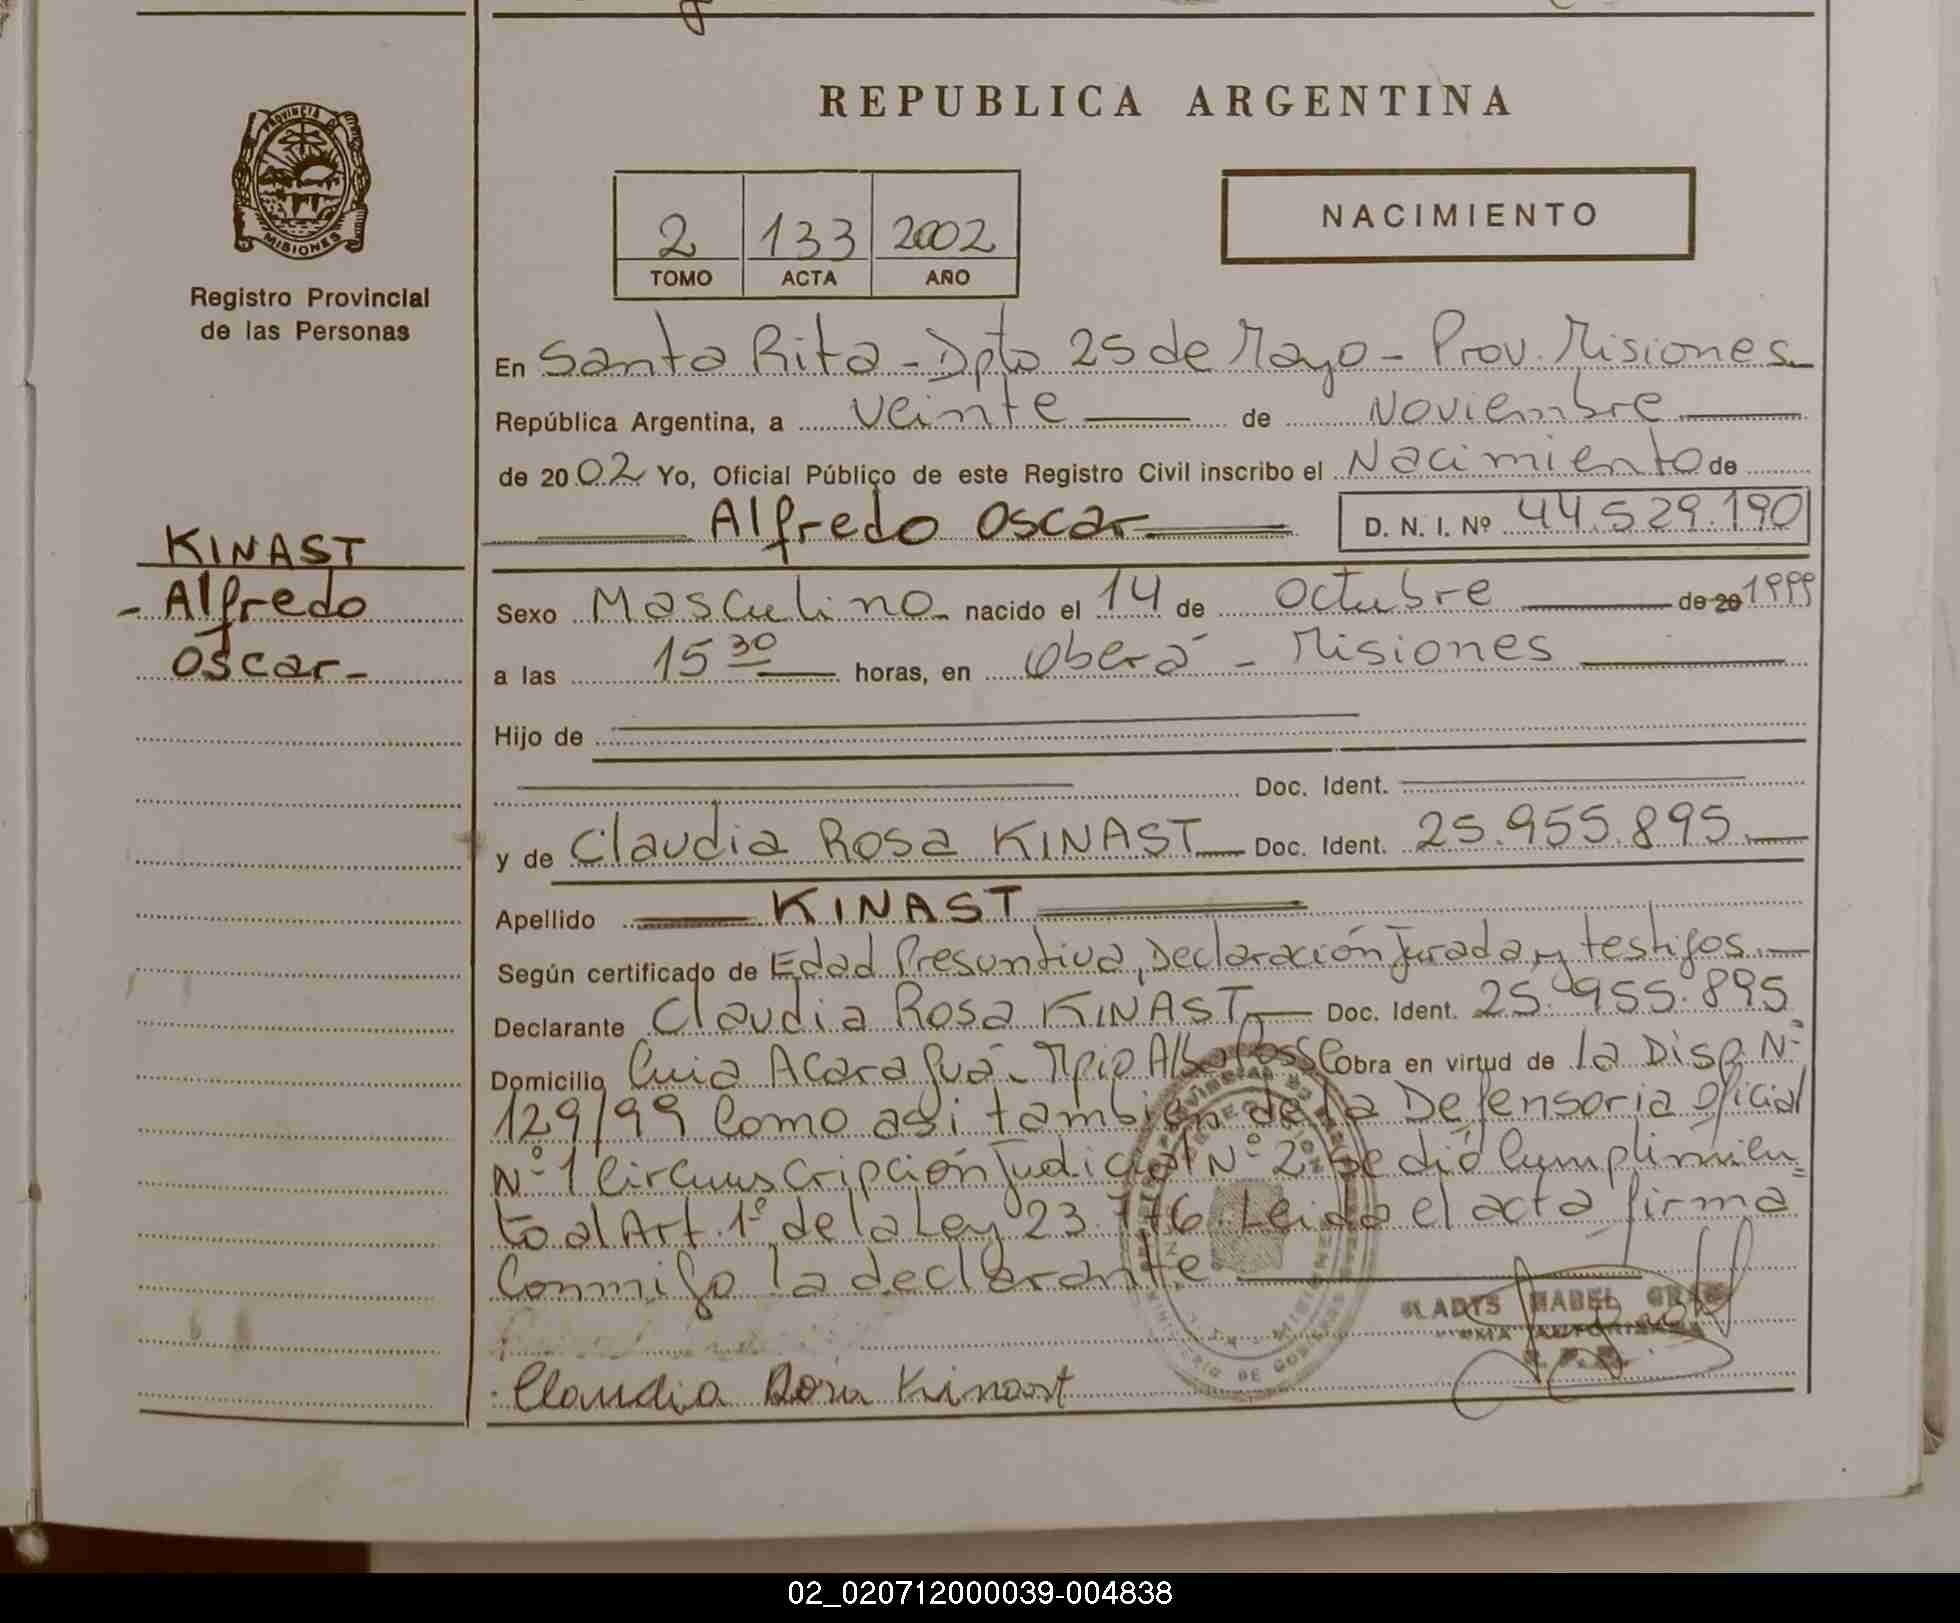 REPUBLICA ARGENTINA
PROVINCIA DE
MISIONES
Registro Provincial
de las Personas
2 133 2002
TOMO ACTA AÑO
NACIMIENTO
En Santa Rita - Dpto 25 de Mayo - Prov. Misiones
República Argentina, a veinte de Noviembre
de 2002 Yo, Oficial Público de este Registro Civil inscribo el Nacimiento de
Alfredo Oscar D. N. I. Nº 44.529.190
KINAST
Alfredo
Oscar
Sexo Masculino nacido el 14 de Octubre de 20 1999
a las 15 30 horas, en Oberá - Misiones
Hijo de
Doc. Ident.
y de Claudia Rosa KINAST Doc. Ident. 25.955.895
Apellido KINAST
Según certificado de Edad Presuntiva, Declaración Jurada y testigos.
Declarante Claudia Rosa KINAST Doc. Ident. 25.955.895
Domicilio Cuia Acaraguá - Mpio Alba Posse Obra en virtud de la Disp. Nº
129/99 Como asi tambien de la Defensoria Oficial
Nº 1 Circunscripción Judicial Nº 2. Se dió Cumplimien=
to al Art. 1º de la Ley 23.776. Leida el acta firma
Conmigo la declarante
GLADYS MABEL
Claudia Rosa Kinast
02_020712000039-004838